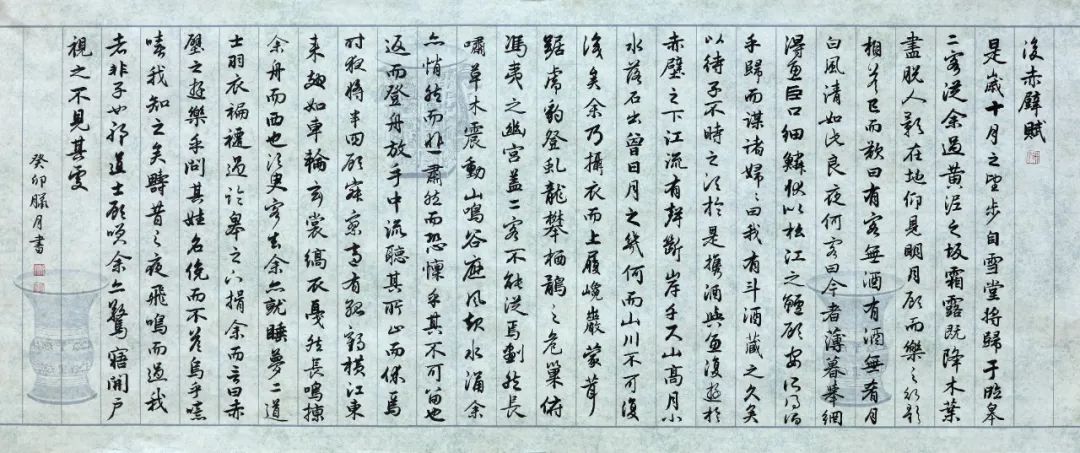 後赤壁賦
是歲十月之望步自雪堂將歸于臨皋
二客從余過黃泥之坂霜露既降木葉
盡脫人影在地仰見明月顧而樂之行歌
相答已而歎曰有客無酒有酒無肴月
白風清如此良夜何客曰今者薄暮舉網
得魚巨口細鱗狀似松江之鱸顧安所得酒
乎歸而謀諸婦〻曰我有斗酒藏之久矣
以待子不時之須於是攜酒與魚復遊於
赤壁之下江流有聲斷岸千尺山高月小
水落石出曾日月之幾何而山川不可復
識矣余乃攝衣而上履巉巖蒙茸
踞虎豹登虬龍攀栖鶻之危巢俯
馮夷之幽宮蓋二客不能從焉劃然長
嘯草木震動山鳴谷應風起水涌余
亦悄然而悲肅然而恐懍乎其不可留也
返而登舟放乎中流聽其所止而休焉
時夜將半四顧寂寥適有孤鶴橫江東
來翅如車輪玄裳縞衣戛然長鳴掠
余舟而西也須臾客去余亦就睡夢二道
士羽衣褊褼過臨皋之下揖余而言曰赤
壁之遊樂乎問其姓名俛而不答烏乎噫
嘻我知之矣疇昔之夜飛鳴而過我
者非子也邪道士顧笑余亦驚寤開戶
視之不見其處
癸卯臘月書